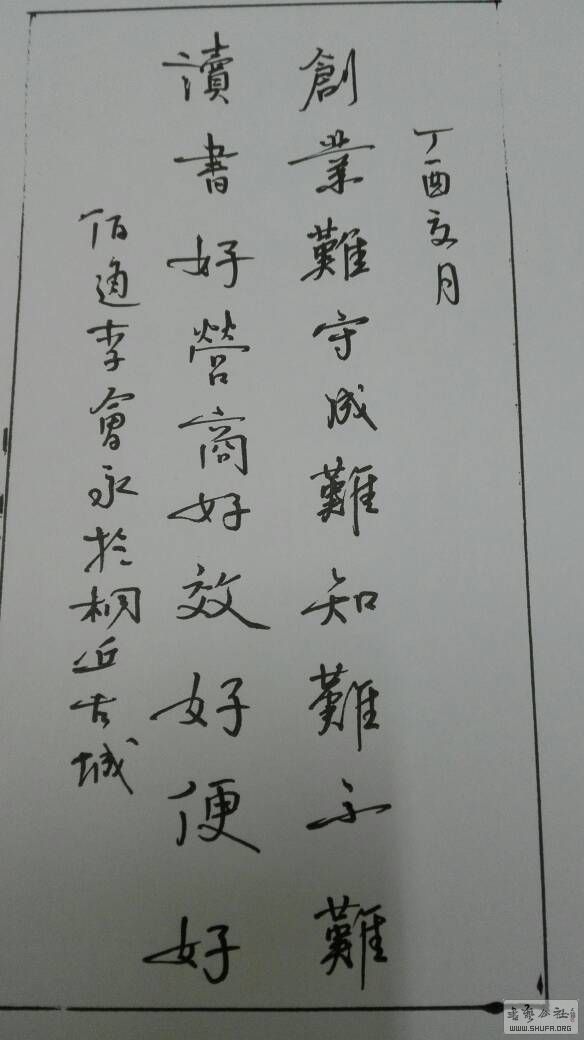 丁酉亥月
創業難守成難知難不難
讀書好營商好效好便好
佰通李會永於桐丘古城
WWW.SHUFA.ORG